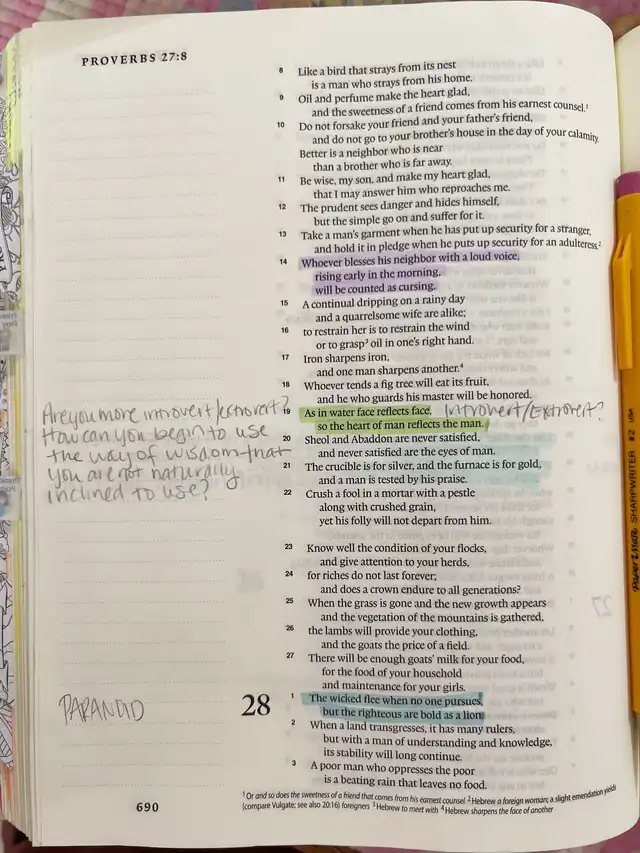 PROVERBS 27:8
8 Like a bird that strays from its nest
is a man who strays from his home.
9 Oil and perfume make the heart glad,
and the sweetness of a friend comes from his earnest counsel.1
10 Do not forsake your friend and your father's friend,
and do not go to your brother's house in the day of your calamity.
Better is a neighbor who is near
than a brother who is far away.
11 Be wise, my son, and make my heart glad,
that I may answer him who reproaches me.
12 The prudent sees danger and hides himself,
but the simple go on and suffer for it.
13 Take a man's garment when he has put up security for a stranger,
and hold it in pledge when he puts up security for an adulteress.2
14 Whoever blesses his neighbor with a loud voice,
rising early in the morning,
will be counted as cursing.
15 A continual dripping on a rainy day
and a quarrelsome wife are alike;
16 to restrain her is to restrain the wind
or to grasp3 oil in one's right hand.
17 Iron sharpens iron,
and one man sharpens another.4
18 Whoever tends a fig tree will eat its fruit,
and he who guards his master will be honored.
19 As in water face reflects face, Introvert/Extrovert?
so the heart of man reflects the man.
Are you more introvert/extrovert?
How can you begin to use
the way of wisdom that
you are not naturally
inclined to use?
20 Sheol and Abaddon are never satisfied,
and never satisfied are the eyes of man.
21 The crucible is for silver, and the furnace is for gold,
and a man is tested by his praise.
22 Crush a fool in a mortar with a pestle
along with crushed grain,
yet his folly will not depart from him.
23 Know well the condition of your flocks,
and give attention to your herds,
24 for riches do not last forever;
and does a crown endure to all generations?
25 When the grass is gone and the new growth appears
and the vegetation of the mountains is gathered,
26 the lambs will provide your clothing,
and the goats the price of a field.
27 There will be enough goats' milk for your food,
for the food of your household
and maintenance for your girls.
PARANOID
28 1 The wicked flee when no one pursues,
but the righteous are bold as a lion.
2 When a land transgresses, it has many rulers,
but with a man of understanding and knowledge,
its stability will long continue.
3 A poor man who oppresses the poor
is a beating rain that leaves no food.
1 Or and so does the sweetness of a friend that comes from his earnest counsel 2 Hebrew a foreign woman; a slight emendation yields
(compare Vulgate; see also 20:16) foreigners 3 Hebrew to meet with 4 Hebrew sharpens the face of another
690
Paper Mate SHARPWRITER #2 USA